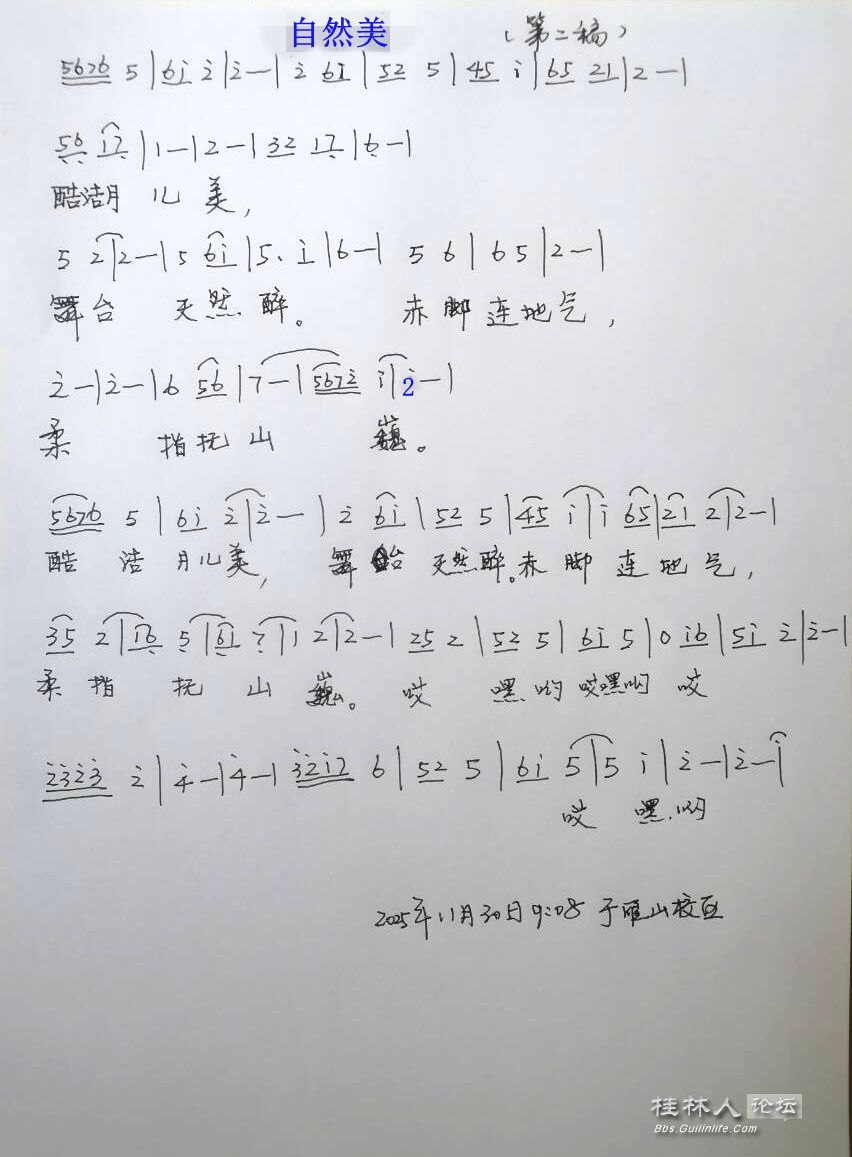 自然美 （第二稿）
5676 5 | 6i 2̇ | 2̇ — | 2̇ 6i | 52 5 | 45 i | 65 21 | 2 — |
5̣6̣ 17̣ | 1 — | 2 — | 32 17̣ | 6̣ — |
酷洁月儿美，
5 2 | 2 — | 5 6i | 5. i | 6 — | 5 6 | 65 | 2 — |
舞台 天然醉。 赤脚连地气，
2̇ — | 2̇ — | 6 56 | 7 — | 5672̇ i | 2 — |
柔 指抚山 巍。
5676 5 | 6i 2̇ | 2̇ — | 2̇ 6i | 52 5 | 45 i | i 65 | 21 2 | 2 — |
酷 洁 月儿美， 舞台 天然醉。赤脚 连地气，
35 2 | 16̣ 5̣ | 6̣1 7̣ | 1 2 | 2 — | 25 2 | 52 5 | 6i 5 | 0 i6 | 5i 2̇ | 2̇ — |
柔指 抚 山 巍。 哎 嘿哟哎嘿哟 哎
2̇3̇2̇3̇ 2̇ | 4̇ — | 4̇ — | 3̇2̇i7 6 | 52 5 | 6i 5 | 5 i | 2̇ — | 2̇ — | i
哎 嘿哟
2025年11月30日9:08 于雁山校区
桂林人论坛
Bbs.Guilinlife.Com